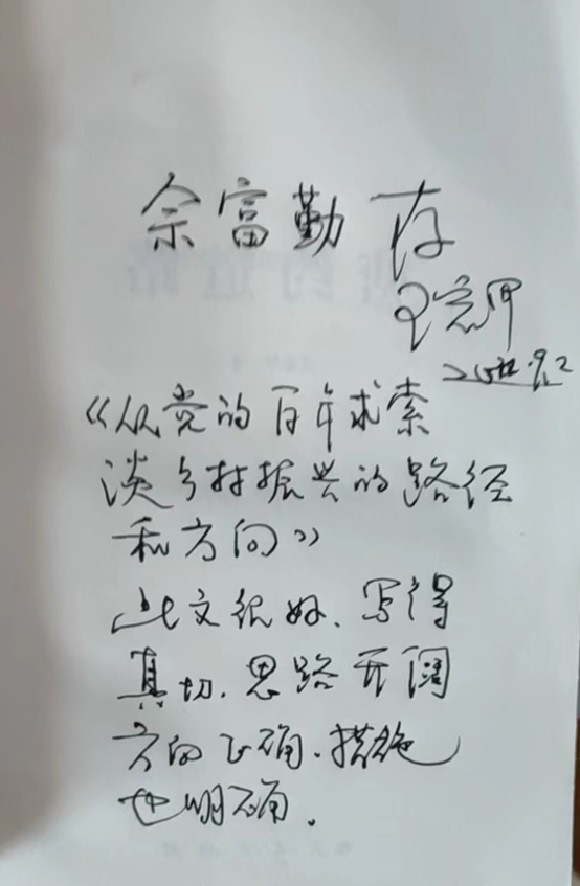 佘富勤 存
王宏甲
《从党的百年求索
谈乡村振兴的路径
和方向》
此文很好、写得
真切，思路开阔
方向正确、措施
也明确。